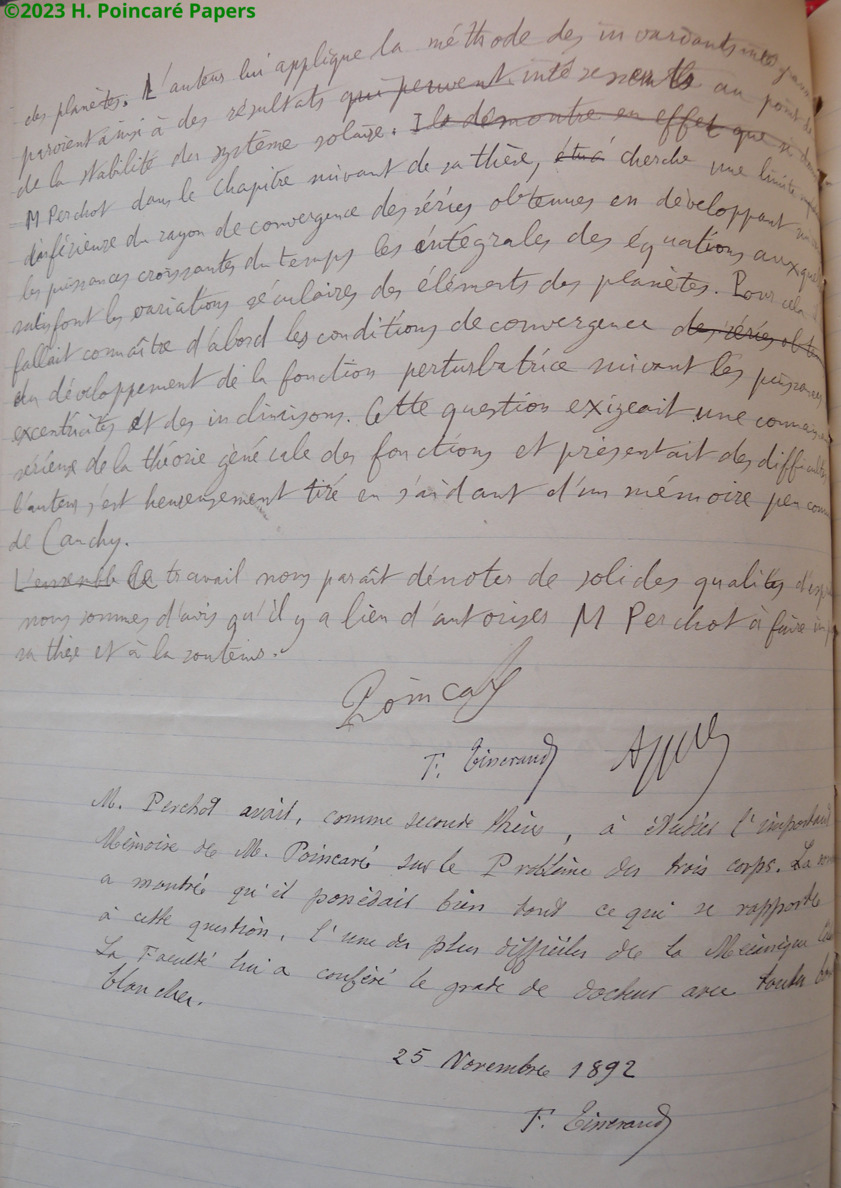 ©2023 H. Poincaré Papers
des planètes. L'auteur lui applique la méthode des invariants intégraux
paroient ainsi à des résultats qui peuvent intéressants au point de
de la stabilité du système solaire. Il démontre en effet que si
M Perchot dans le chapitre suivant de sa thèse, étud cherche une limite
d'inférieure du rayon de convergence des séries obtenues en développant suivant
les puissances croissantes du temps les intégrales des équations auxquel
satisfont les variations séculaires des éléments des planètes. Pour cela il
fallait connaître d'abord les conditions de convergence des séries obten
du développement de la fonction perturbatrice suivant les puissances
excentricités et des inclinaisons. Cette question exigeait une connais
sérieuse de la théorie générale des fonctions et présentait des difficultés
l'auteur s'est heureusement tiré en s'aidant d'un mémoire peu connu
de Cauchy.
L'ensemble Ce travail nous paraît dénoter de solides qualités d'esp
nous sommes d'avis qu'il y a lieu d'autoriser M Perchot à faire imp
sa thèse et à la soutenir.
Poincaré
F. Tisserand Appell
M. Perchot avait, comme seconde thèse, à étudier l'important
Mémoire de M. Poincaré sur le Problème des trois corps. La
a montré qu'il possédait bien tout ce qui se rapporte
à cette question, l'une des plus difficiles de la Mécanique
La Faculté lui a conféré le grade de docteur avec toutes bou
blanches.
25 Novembre 1892
F. Tisserand